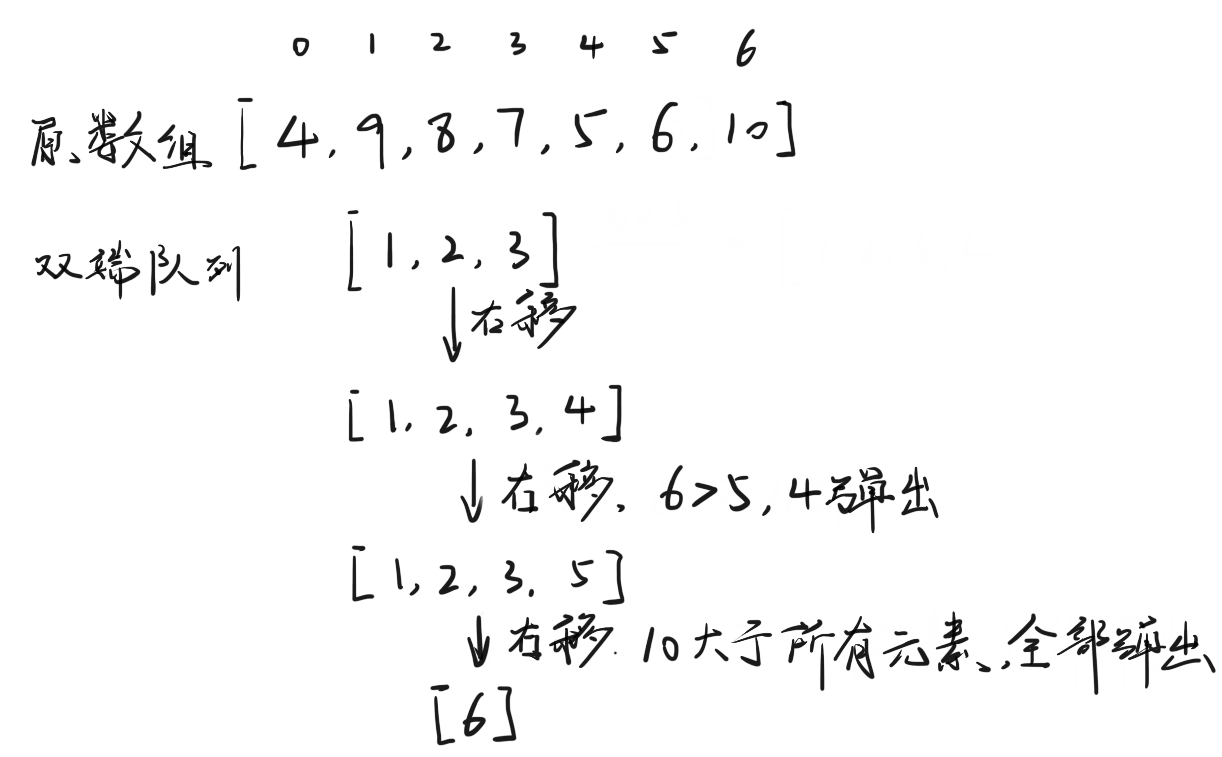 0 1 2 3 4 5 6
原数组 [4, 9, 8, 7, 5, 6, 10]
双端队列 [1, 2, 3]
↓右移
[1, 2, 3, 4]
↓右移. 6>5, 4弹出
[1, 2, 3, 5]
↓右移. 10大于所有元素, 全部弹出
[6]